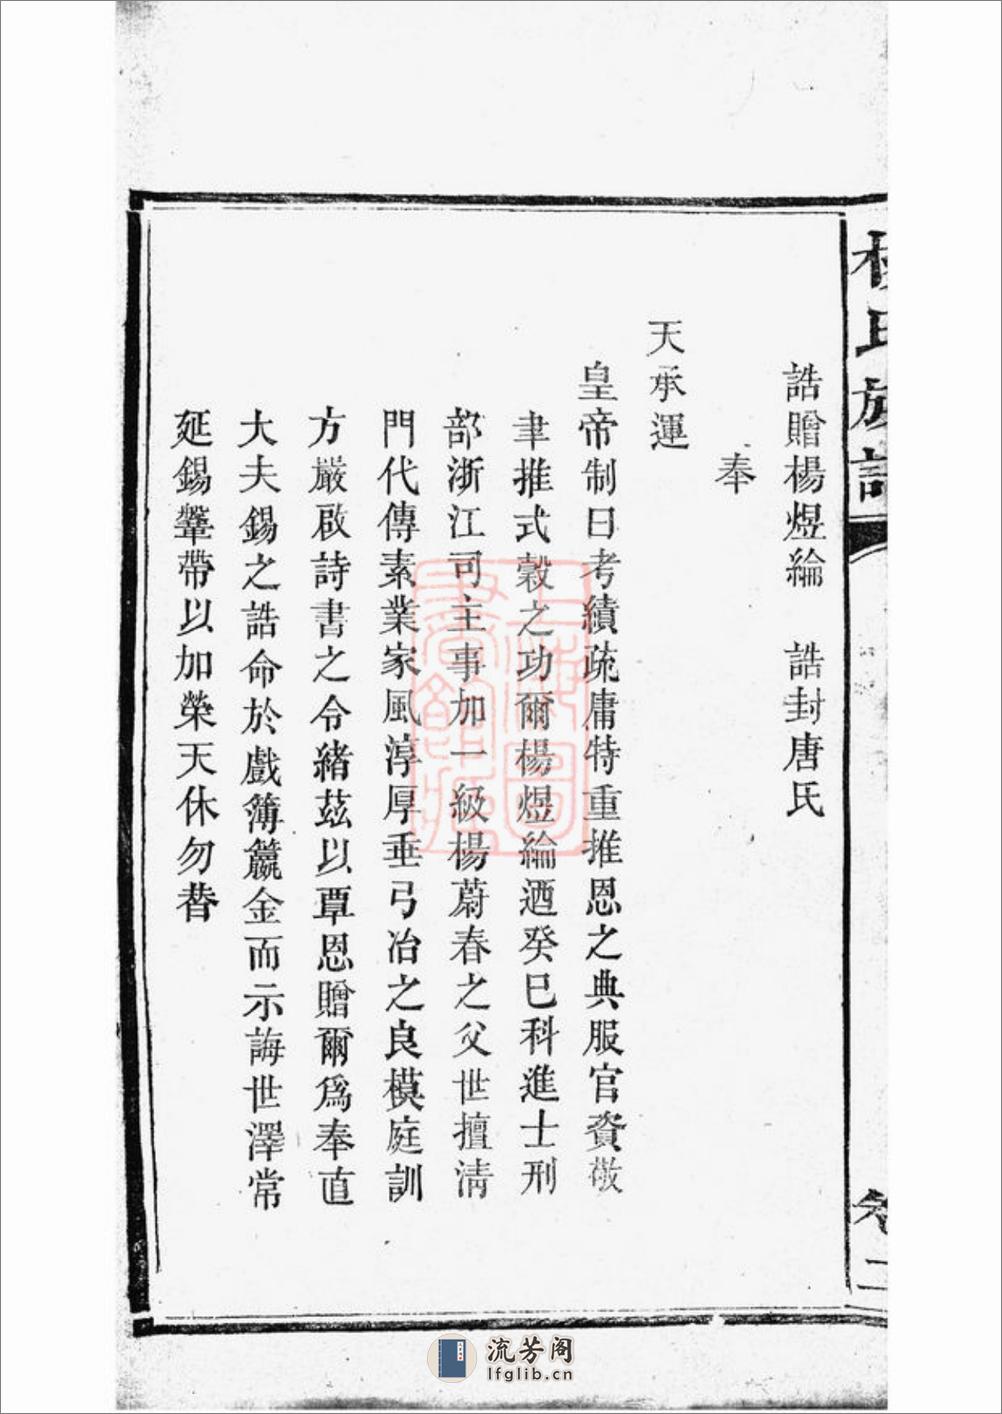 楊氏族譜
卷二
誥贈楊煜綸　誥封唐氏
奉
天承運
皇帝制曰考績疏庸特重推恩之典服官資敬
聿推式穀之功爾楊煜綸迺癸巳科進士刑
部浙江司主事加一級楊蔚春之父世擅淸
門代傳素業家風淳厚垂弓冶之良模庭訓
方嚴啟詩書之令緒茲以覃恩贈爾爲奉直
大夫錫之誥命於戲簿籯金而示誨世澤常
延錫鞶帶以加榮天休勿替
上海圖書館藏
流芳阁
lfglib.cn